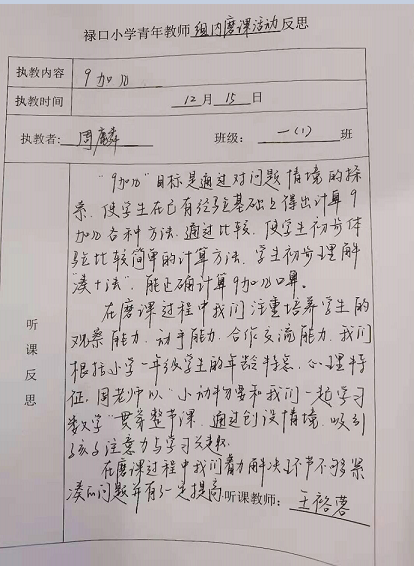 禄口小学青年教师 组内磨课活动 反思
执教内容 9加几
执教时间 12月15日
执教者: 周麟 班级: 一(1) 班
听课反思
“9加几”目标是通过对问题情境的探
索,使学生在已有经验基础上得出计算9
加几各种方法,通过比较,使学生初步体
验比较简单的计算方法,学生初步理解
“凑十法”,能正确计算9加几口算。
在磨课过程中我们注重培养学生的
观察能力、动手能力、合作交流能力,我们
根据小学一年级学生的年龄特点,心理特
征,周老师以“小动物要和我们一起学习
数学”贯穿整节课,通过创设情境,吸引
孩子注意力与学习兴趣。
在磨课过程中我们着力解决环节不够紧
凑的问题并有一定提高
听课教师: 王裕蓉